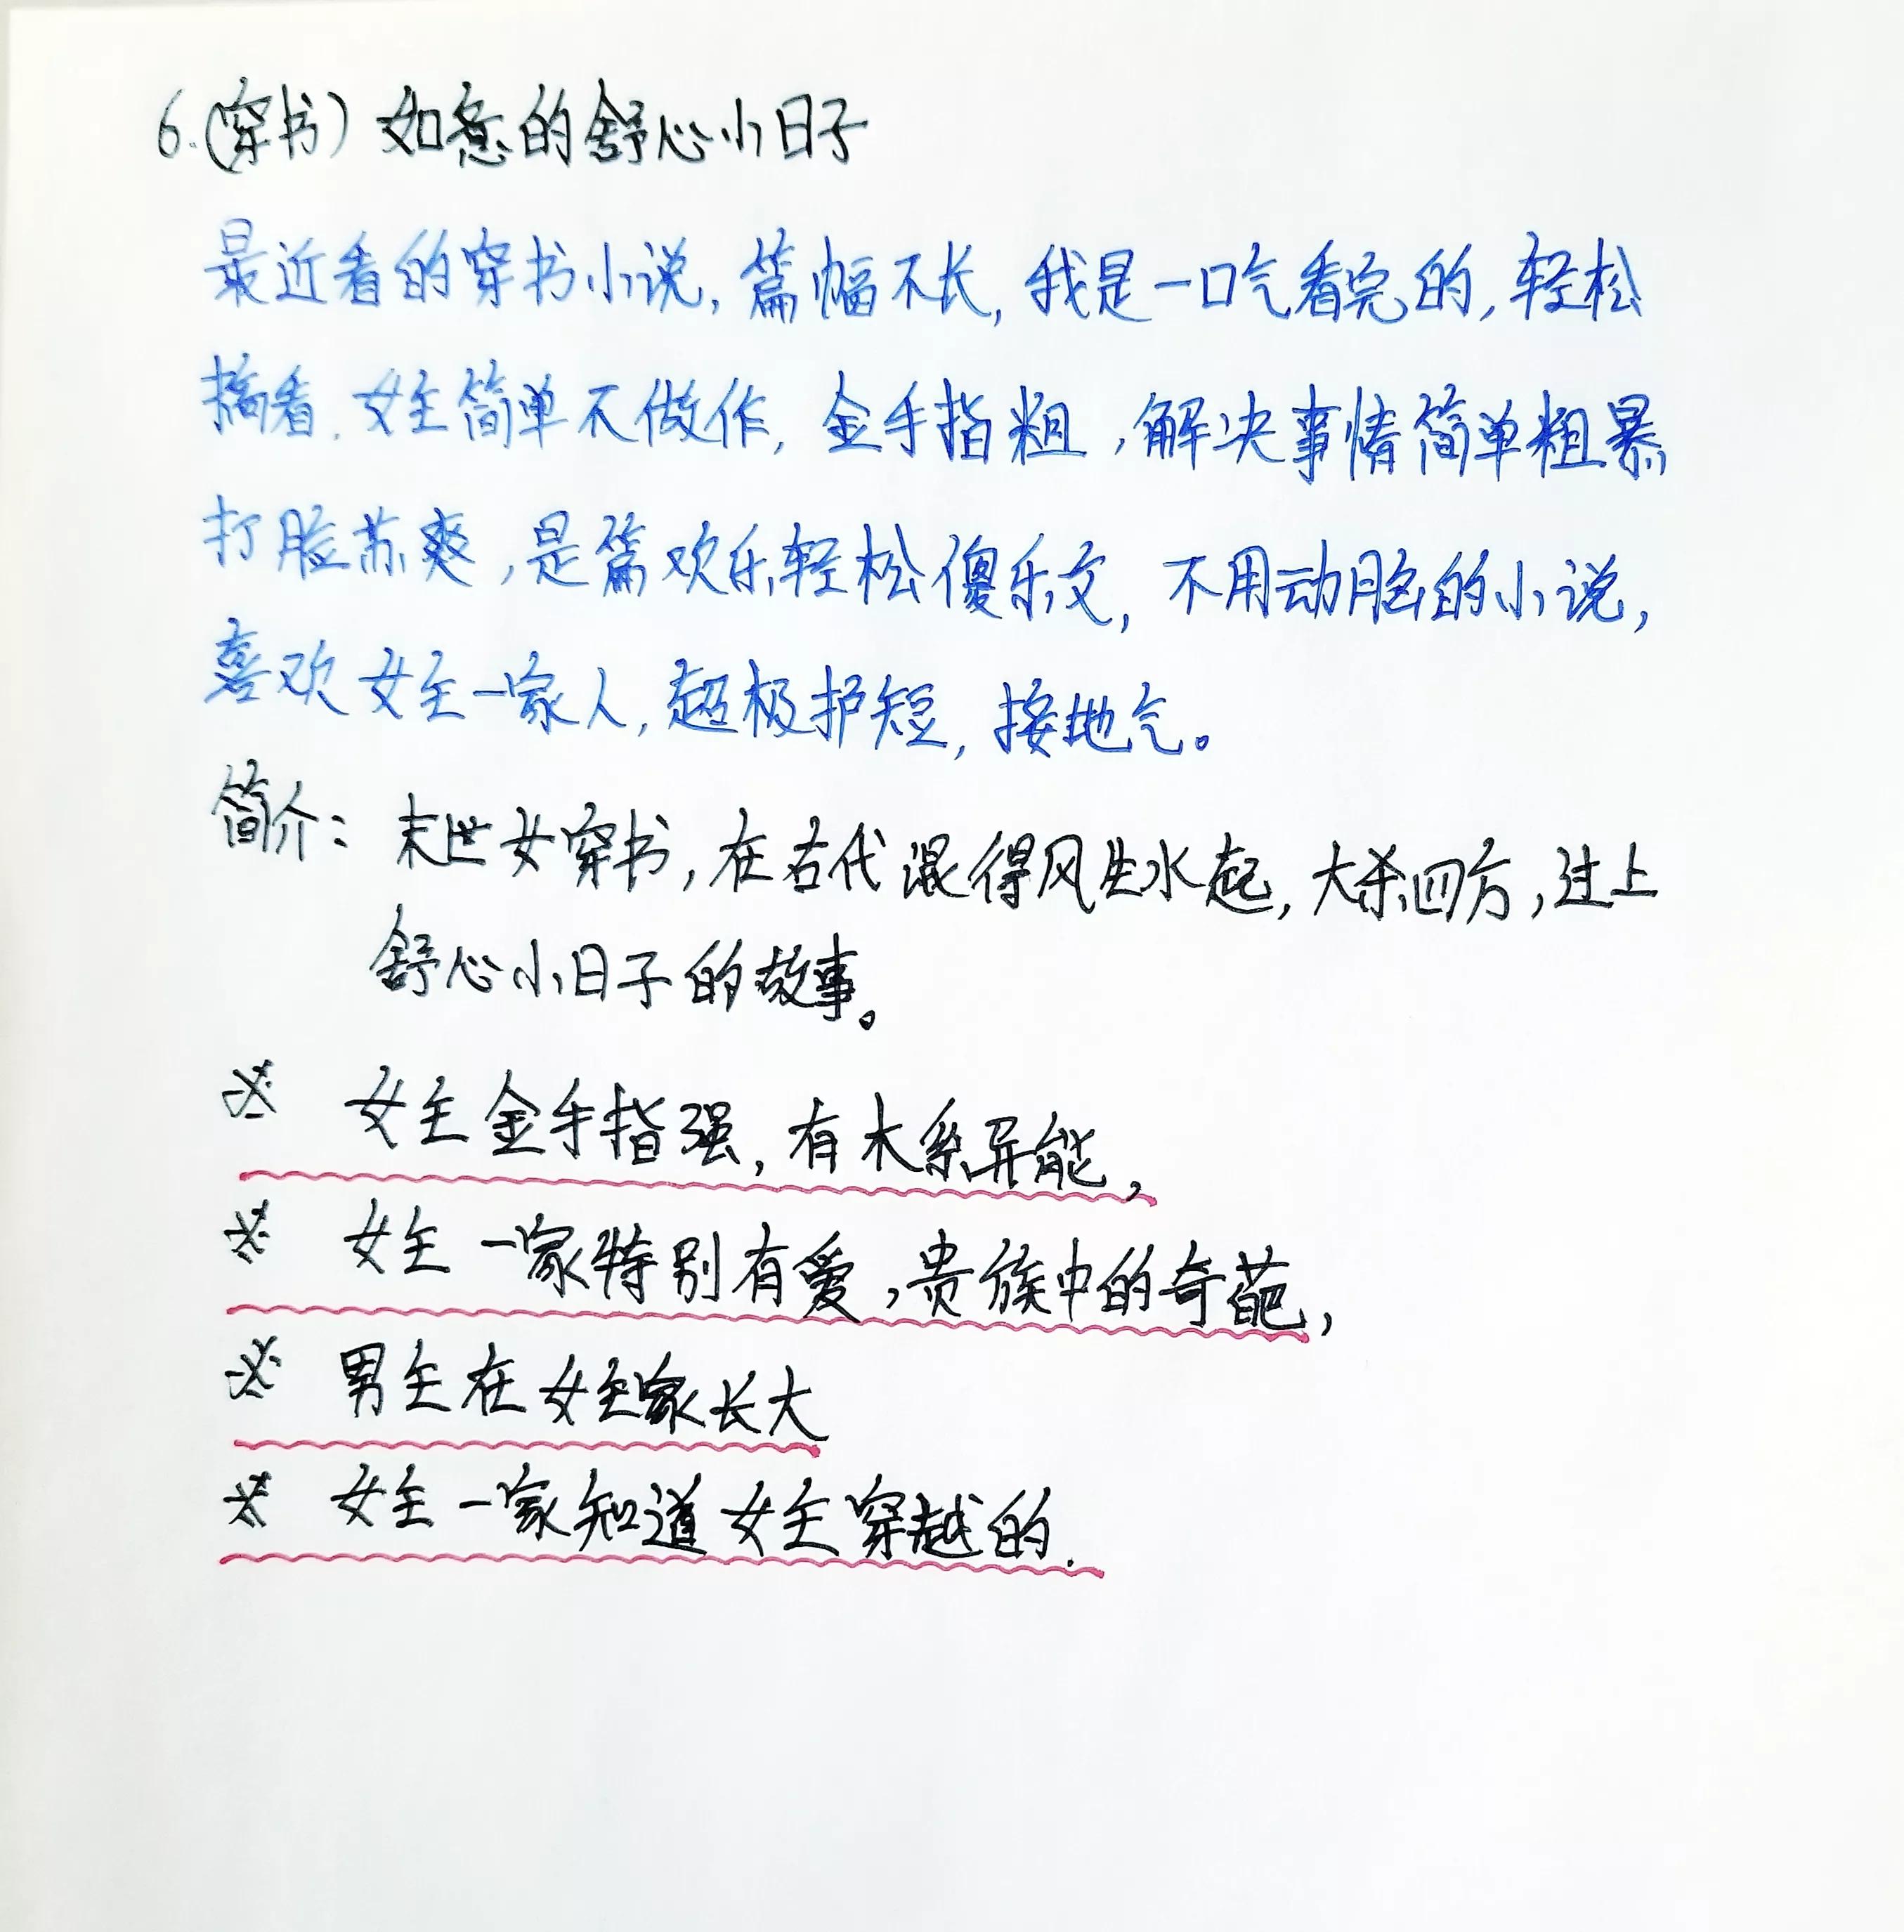 6.(穿书)如意的舒心小日子
最近看的穿书小说,篇幅不长,我是一口气看完的,轻松
搞看.女主简单不做作,金手指粗,解决事情简单粗暴
打脸苏爽,是篇欢乐轻松傻乐文,不用动脑的小说,
喜欢女主一家人,超极护短,接地气。
简介:末世女穿书,在古代混得风生水起,大杀四方,过上
舒心小日子的故事。
※ 女主金手指强,有木系异能,
※ 女主一家特别有爱,贵族中的奇葩,
※ 男主在女主家长大
※ 女主一家知道女主穿越的.